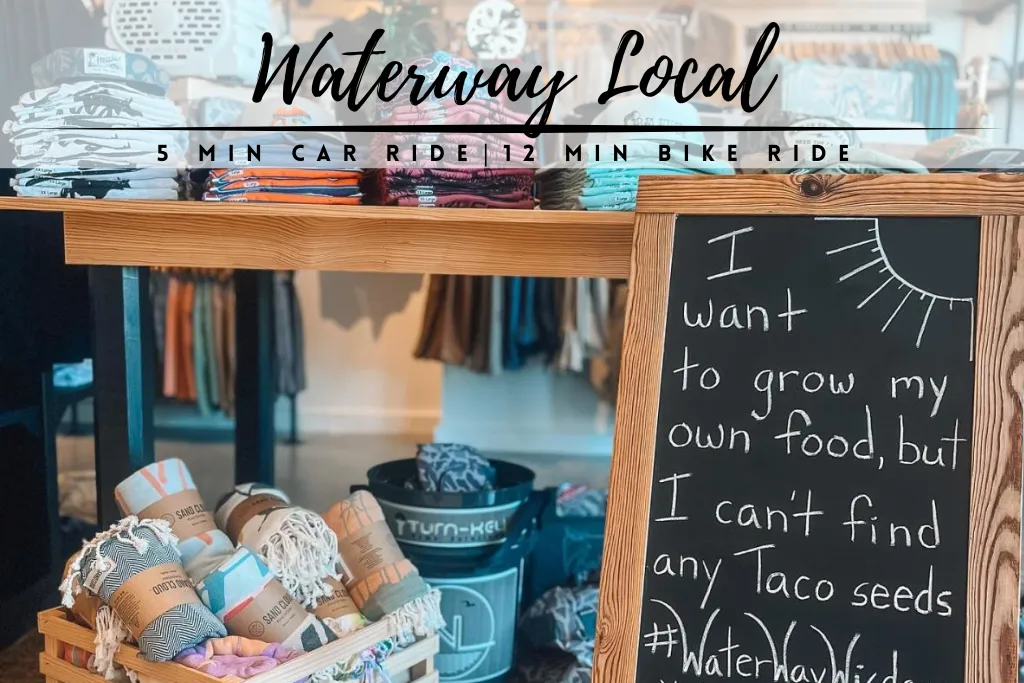 Waterway Local
5 MIN CAR RIDE|12 MIN BIKE RIDE
I
want
to grow my
own food, but
I can't find
any Taco seeds
SAND CLOUD
SAND CLOUD
SAND CLOUD
TURN-KEY